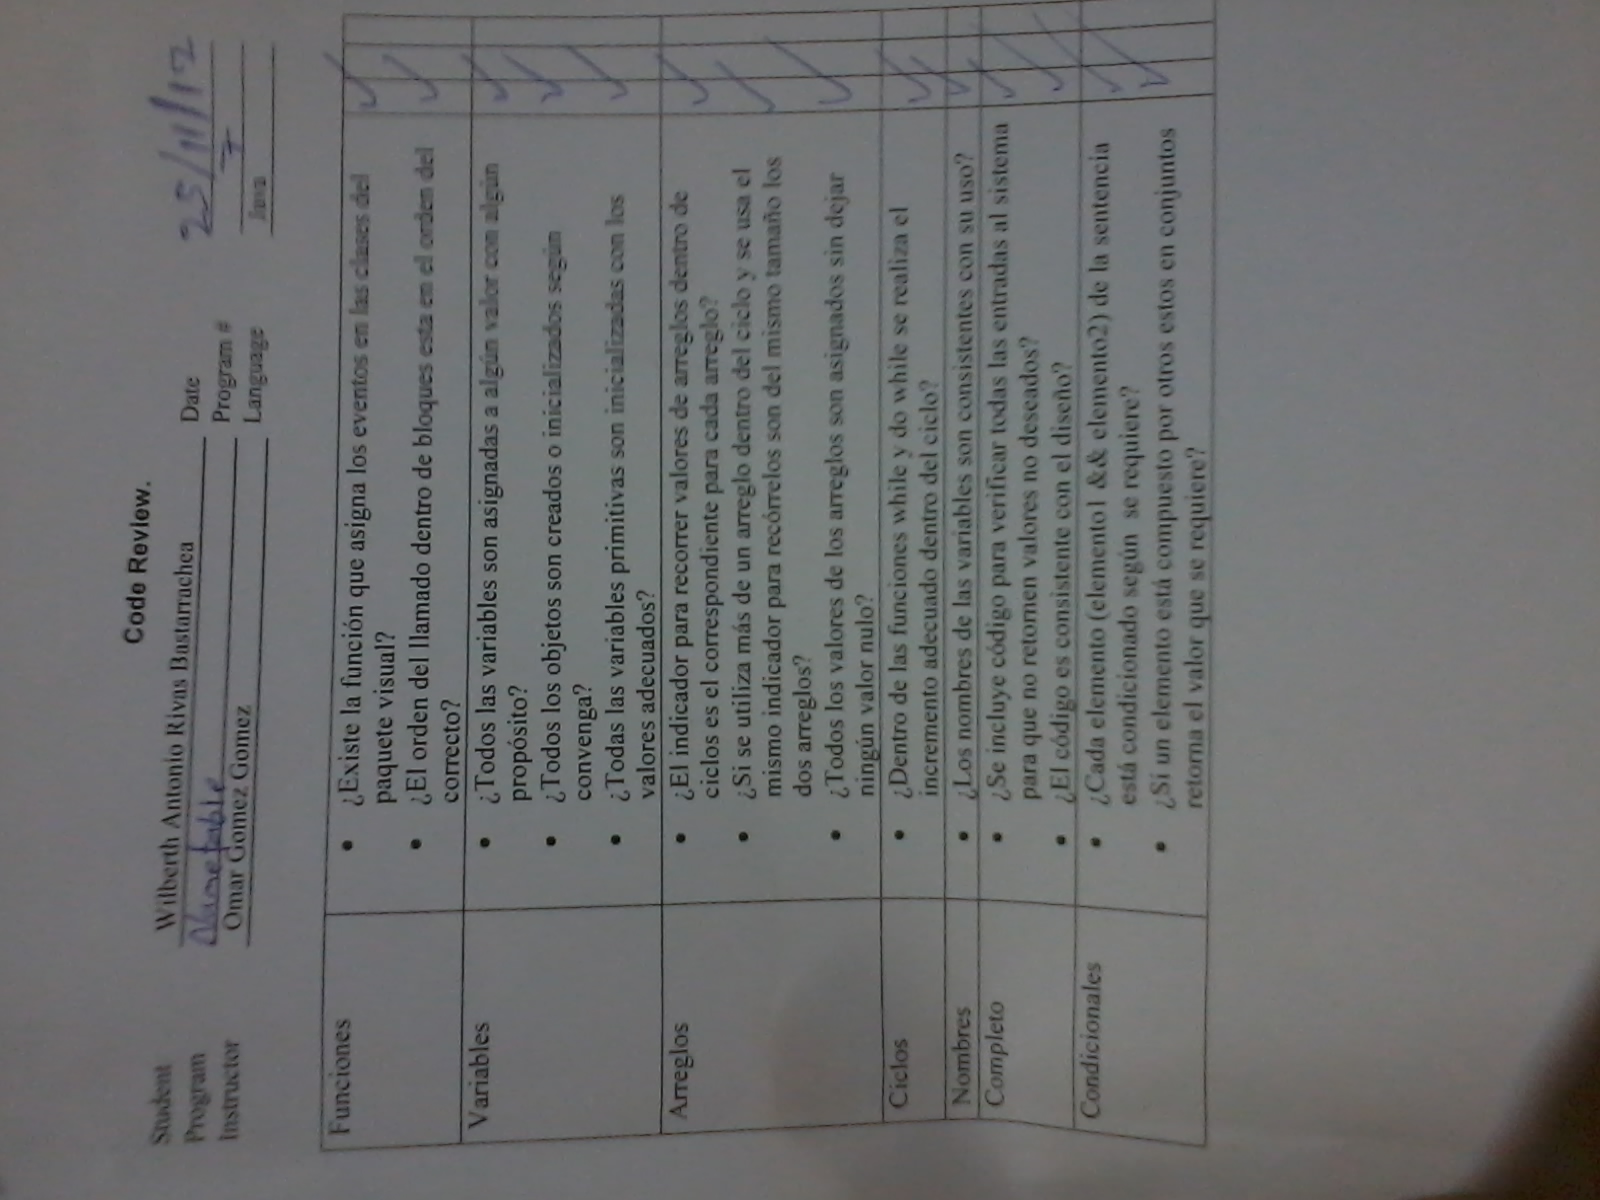 Code Review.
Student Wilberth Antonio Rivas Bastarrachea Date 25/11/12
Program Nametable Program # 7
Instructor Omar Gomez Gomez Language Java
Funciones • ¿Existe la función que asigna los eventos en las clases del ✓
paquete visual?
• ¿El orden del llamado dentro de bloques esta en el orden del ✓
correcto?
Variables • ¿Todos las variables son asignadas a algún valor con algún ✓
propósito?
• ¿Todos los objetos son creados o inicializados según ✓
convenga?
• ¿Todas las variables primitivas son inicializadas con los ✓
valores adecuados?
Arreglos • ¿El indicador para recorrer valores de arreglos dentro de ✓
ciclos es el correspondiente para cada arreglo?
• ¿Si se utiliza más de un arreglo dentro del ciclo y se usa el ✓
mismo indicador para recórrelos son del mismo tamaño los
dos arreglos?
• ¿Todos los valores de los arreglos son asignados sin dejar ✓
ningún valor nulo?
Ciclos • ¿Dentro de las funciones while y do while se realiza el ✓
incremento adecuado dentro del ciclo?
Nombres • ¿Los nombres de las variables son consistentes con su uso? ✓
Completo • ¿Se incluye código para verificar todas las entradas al sistema ✓
para que no retornen valores no deseados?
• ¿El código es consistente con el diseño? ✓
Condicionales • ¿Cada elemento (elemento1 && elemento2) de la sentencia ✓
está condicionado según se requiere?
• ¿Sí un elemento está compuesto por otros estos en conjuntos ✓
retorna el valor que se requiere?